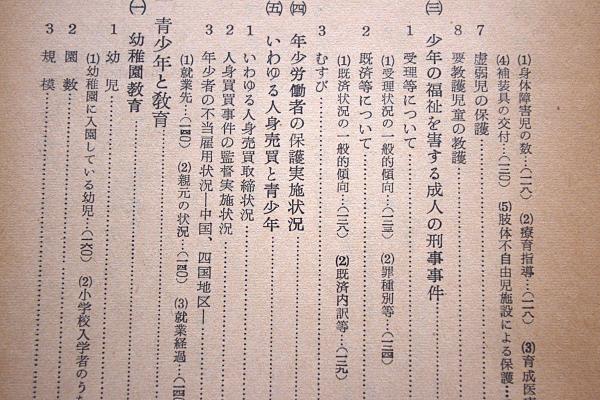 (1)身体障害児の数…(一一八) (2)療育指導…(一一八) (3)育成医
(4)補装具の交付…(一二〇) (5)肢体不自由児施設による保護…
7 虚弱児の保護
8 要教護児童の教護
(三) 少年の福祉を害する成人の刑事事件
1 受理等について
(1)受理状況の一般的傾向…(一三三) (2)罪種別等…(一三四)
2 既済等について
(1)既済状況の一般的傾向…(一三八) (2)既済内訳等…(一三九)
3 むすび
(四) 年少労働者の保護実施状況
(五) いわゆる人身売買と青少年
1 いわゆる人身売買取締状況
2 人身買買事件の監督実施状況
3 年少者の不当雇用状況―中国、四国地区―
(1)就業先…(一四〇) (2)親元の状況…(一四〇) (3)就業経過…(一四
青少年と教育
(一) 幼稚園教育
1 幼児
(1)幼稚園に入園している幼児…(一六〇) (2)小学校入学者のうち
2 園数
3 規模